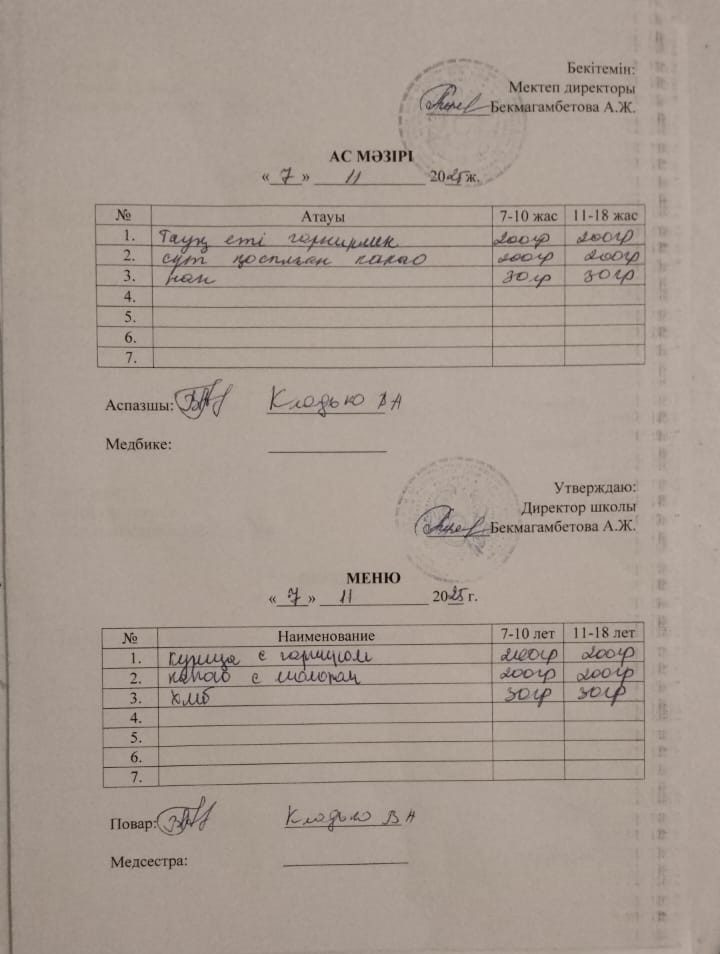 Бекітемін:
Мектеп директоры
Бекмагамбетова А.Ж.
АС МӘЗІРІ
«7» 11 2025 ж.
№ Атауы 7-10 жас 11-18 жас
1. Тауық еті гарнирмен 200гр 200гр
2. сүт қосылған какао 200гр 200гр
3. нан 30гр 30гр
4.
5.
6.
7.
Аспазшы: Кладько В А
Медбике:
Утверждаю:
Директор школы
Бекмагамбетова А.Ж.
МЕНЮ
«7» 11 2025 г.
№ Наименование 7-10 лет 11-18 лет
1. курица с гарниром 200гр 200гр
2. какао с молоком 200гр 200гр
3. хлеб 30гр 30гр
4.
5.
6.
7.
Повар: Кладько В А
Медсестра: